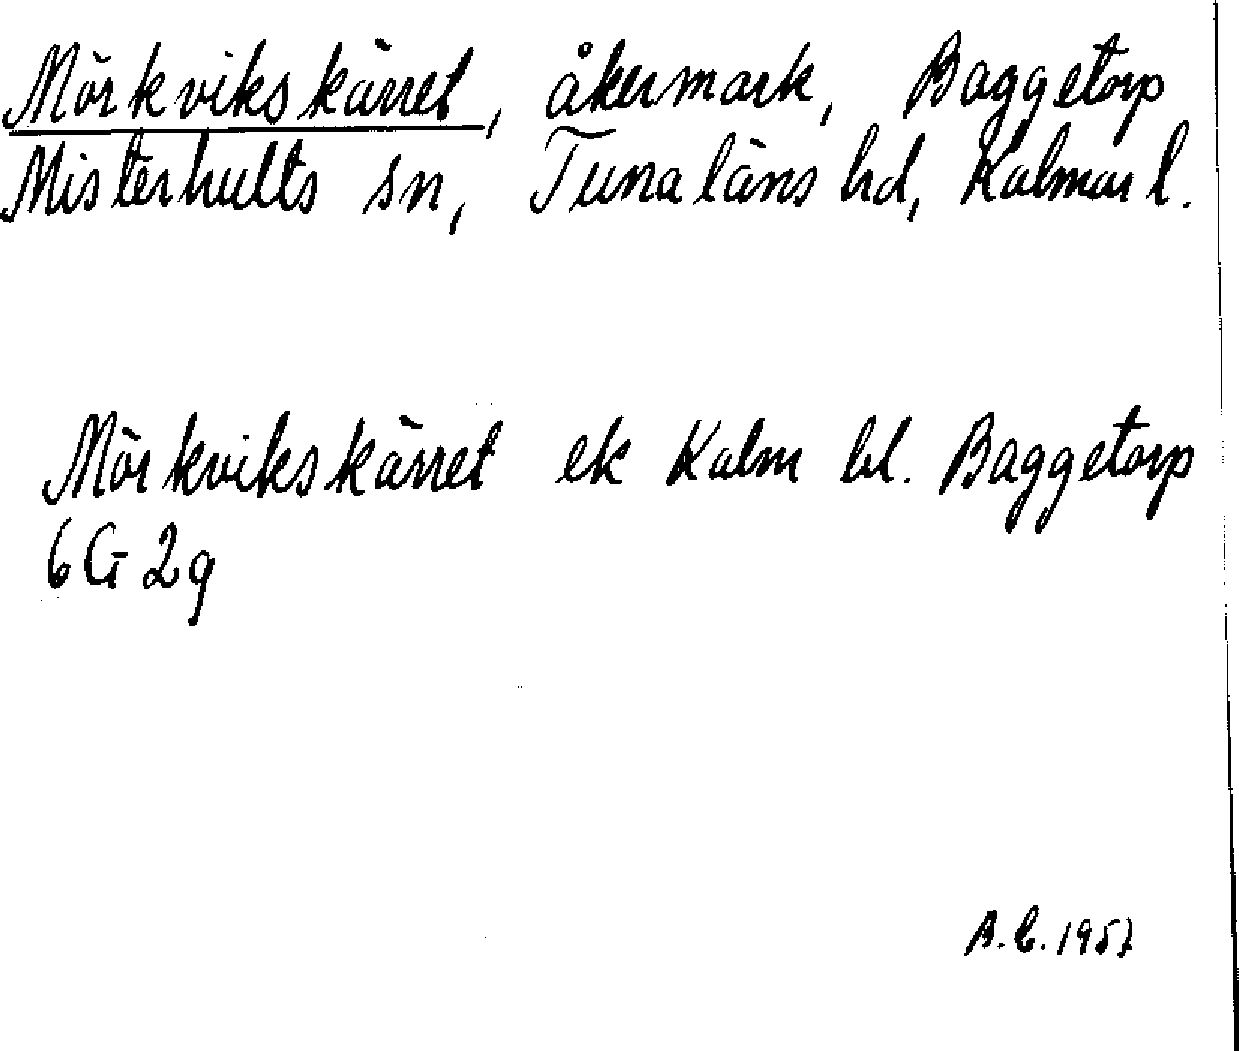 Mörkvikskärret, åkermark, Baggetorp
Misterhults sn, Tunaläns hd, Kalmar l.
Mörkvikskärret ek Kalm bl. Baggetorp
6 G 2g
A.C. 1957